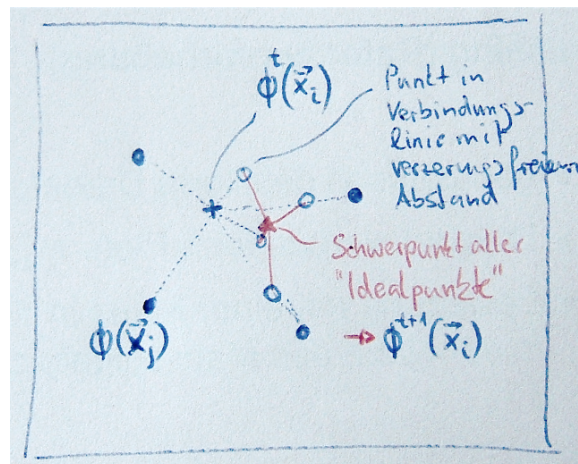 ϕᵗ(x⃗ᵢ)
Punkt in
Verbindungs-
linie mit
verzerungsfreiem
Abstand
Schwerpunkt aller
"Idealpunkte"
ϕ(x⃗ⱼ)
→ ϕᵗ⁺¹(x⃗ᵢ)